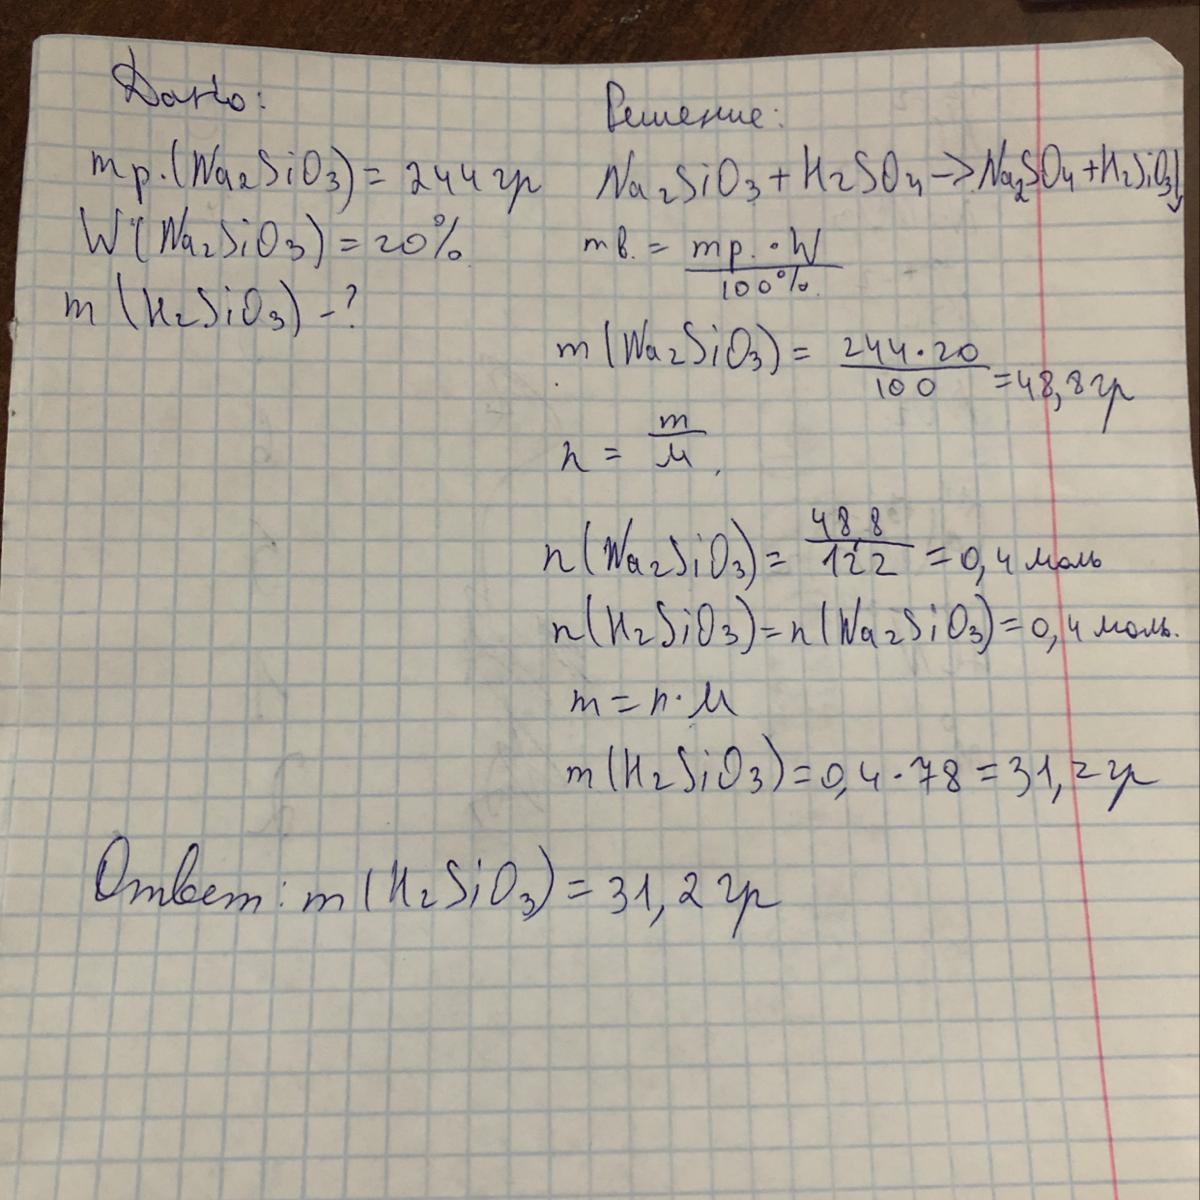 Дано:
mр.(Na2SiO3) = 244 гр
W(Na2SiO3) = 20%
m(H2SiO3) - ?
Решение:
Na2SiO3 + H2SO4 -> Na2SO4 + H2SiO3↓
mв. = mр. · W / 100%
m(Na2SiO3) = 244 · 20 / 100 = 48,8 гр
n = m / M
n(Na2SiO3) = 48,8 / 122 = 0,4 моль
n(H2SiO3) = n(Na2SiO3) = 0,4 моль.
m = n · M
m(H2SiO3) = 0,4 · 78 = 31,2 гр
Ответ: m(H2SiO3) = 31,2 гр